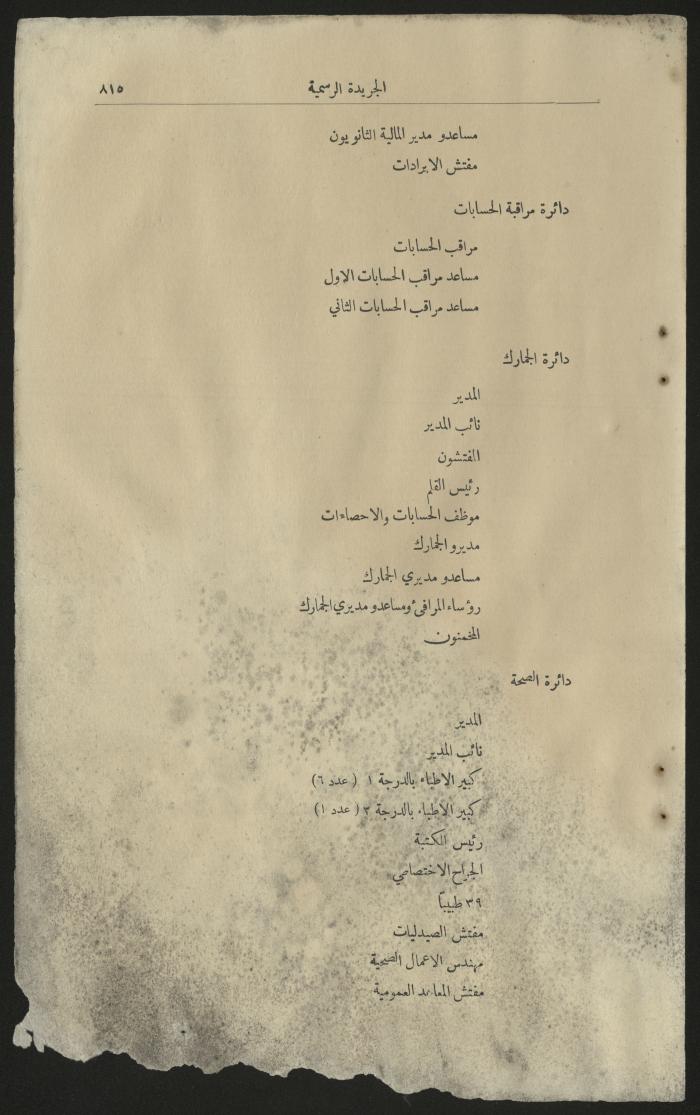 الجريدة الرسمية ٨١٥
مساعدو مدير المالية الثانويون
مفتش الايرادات
دائرة مراقبة الحسابات
مراقب الحسابات
مساعد مراقب الحسابات الاول
مساعد مراقب الحسابات الثاني
دائرة الجمارك
المدير
نائب المدير
المفتشون
رئيس القلم
موظف الحسابات والاحصاءات
مديرو الجمارك
مساعدو مديري الجمارك
رؤساء المرافئ ومساعدو مديري الجمارك
المخمنون
دائرة الصحة
المدير
نائب المدير
كبير الاطباء بالدرجة ١ ( عدد ٦)
كبير الاطباء بالدرجة ٣ ( عدد ١)
رئيس الكتبة
الجراح الاختصاصي
٣٩ طبيبًا
مفتش الصيدليات
مهندس الاعمال الصحية
مفتش المعاهد العمومية